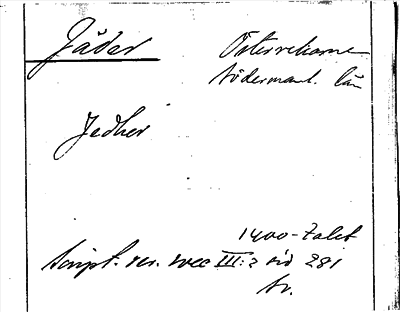 Jäder Österrekarne
Södermanl. län
Jedher
1400-talet
Script. rer. svec III:2 sid 281
tr.